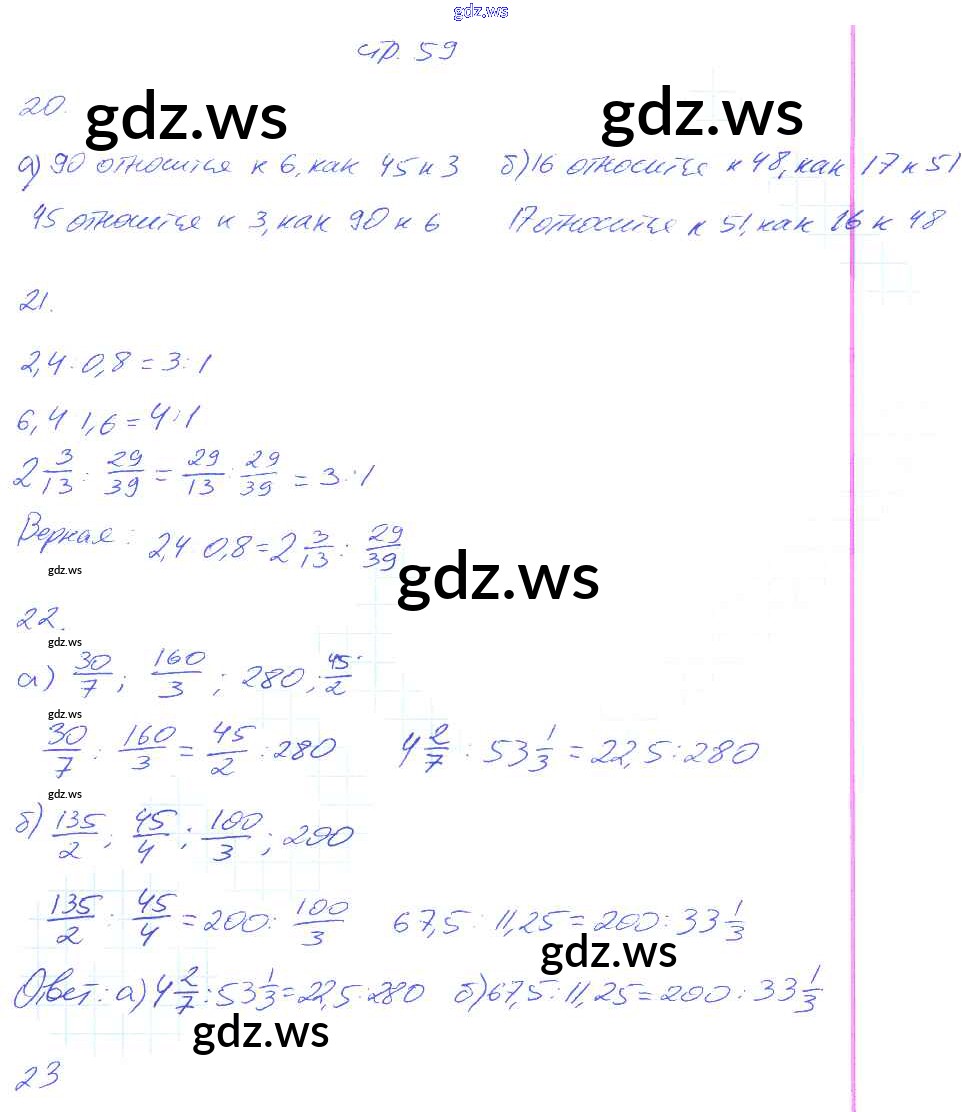 gdz.ws
стр. 59
20.
gdz.ws gdz.ws
а) 90 относится к 6, как 45 к 3 б) 16 относится к 48, как 17 к 51
45 относится к 3, как 90 к 6 17 относится к 51, как 16 к 48
21.
2,4 : 0,8 = 3 : 1
6,4 1,6 = 4 : 1
2 3/13 : 29/39 = 29/13 : 29/39 = 3 : 1
Верная : 2,4 0,8 = 2 3/13 : 29/39
gdz.ws gdz.ws
22.
gdz.ws
а) 30/7 ; 160/3 ; 280 ; 45/2
gdz.ws
30/7 : 160/3 = 45/2 : 280 4 2/7 : 53 1/3 = 22,5 : 280
gdz.ws
б) 135/2 ; 45/4 ; 100/3 ; 200
135/2 : 45/4 = 200 : 100/3 67,5 : 11,25 = 200 : 33 1/3
gdz.ws
Ответ : а) 4 2/7 : 53 1/3 = 22,5 : 280 б) 67,5 : 11,25 = 200 : 33 1/3
gdz.ws
23